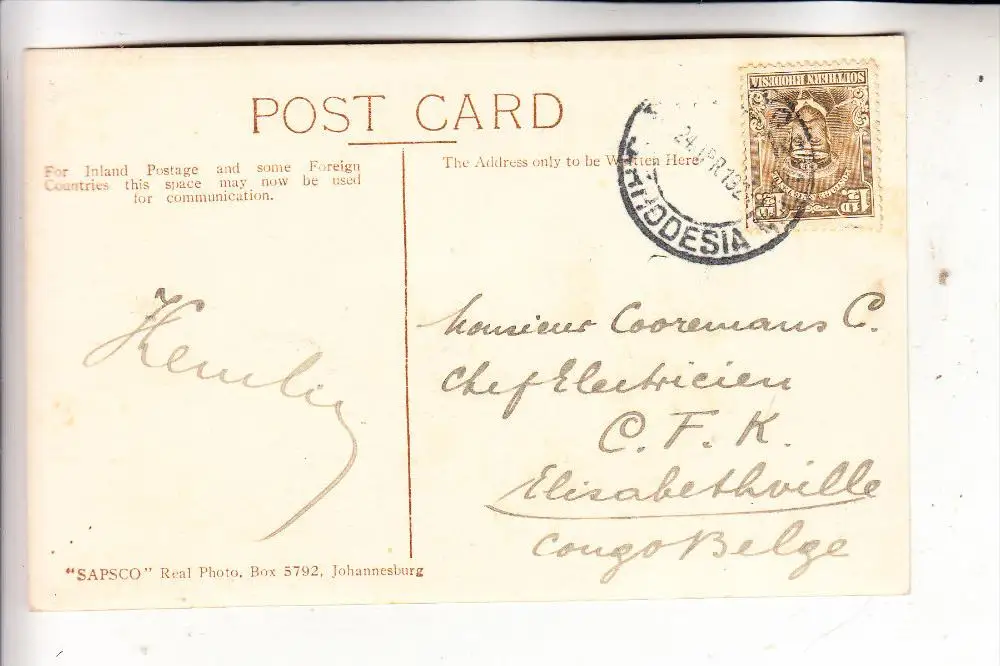 POST CARD
For Inland Postage and some Foreign
Countries this space may now be used
for communication.
The Address only to be Written Here
24 APR 192
RHODESIA
SOUTHERN RHODESIA
1½D
Monsieur Cooremans C.
Chef Electricien
C. F. K.
Elisabethville
Congo Belge
"SAPSCO" Real Photo, Box 5792, Johannesburg